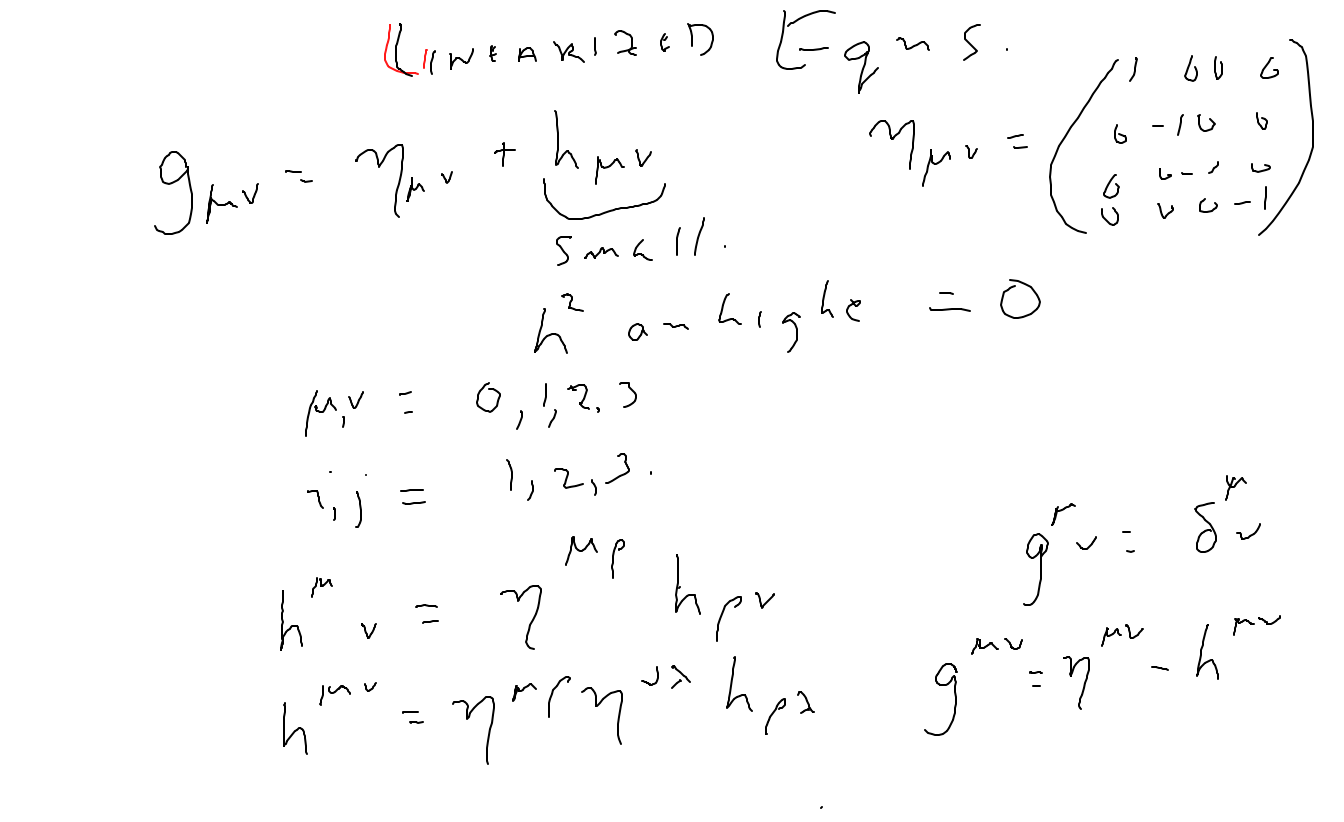 LINEARIZED Eqns.
g_{μν} = η_{μν} + h_{μν}
small.
η_{μν} = ( 1 0 0 0
0 -1 0 0
0 0 -1 0
0 0 0 -1 )
h² an highe = 0
μ,ν = 0,1,2,3
i,j = 1,2,3.
h^μ_ν = η^{μρ} h_{ρν}
g^μ_ν = δ^μ_ν
h^{μν} = η^{μρ} η^{νλ} h_{ρλ}
g^{μν} = η^{μν} - h^{μν}